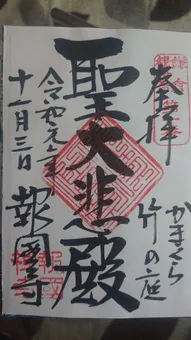 奉拝
かまくら
竹の庭
聖大悲殿
令和元年
十一月三日
報國寺